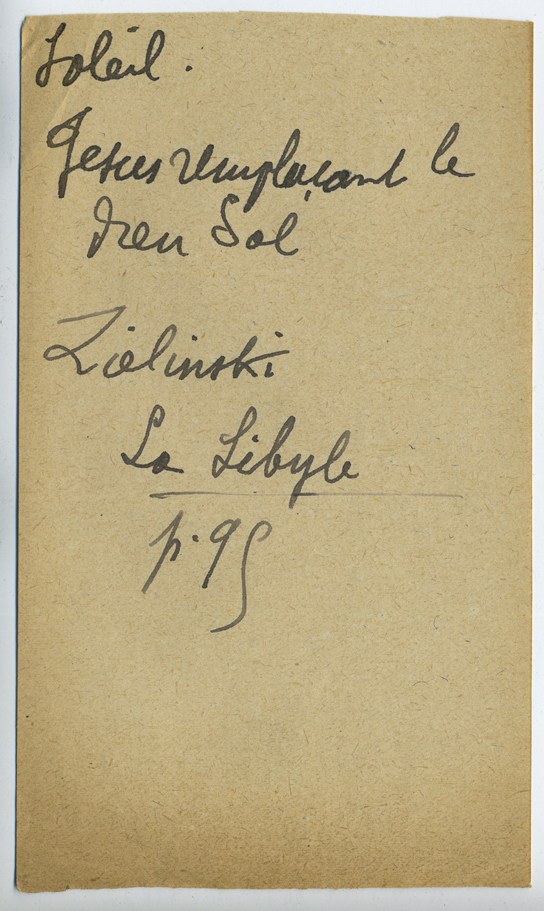 Soleil.
Jesus remplaçant le
Dieu Sol
Zielinski
La Sibyle
p. 95